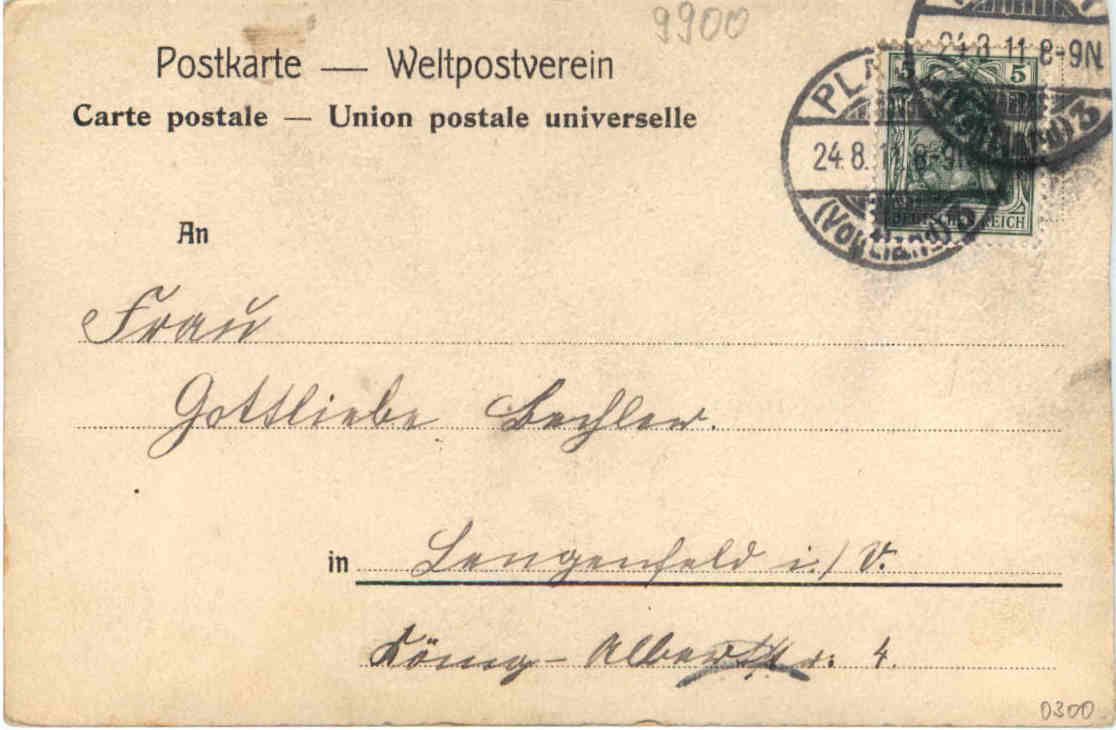 9900
Postkarte — Weltpostverein
Carte postale — Union postale universelle
24.8.11.8-9N
5 5
PLA
3
24.8.11.8-9N
(Vogtland)
DEUTSCHES REICH
An
Frau
Gottliebe Bechler.
in Lengenfeld i./V.
König-Albertstr. 4.
0300